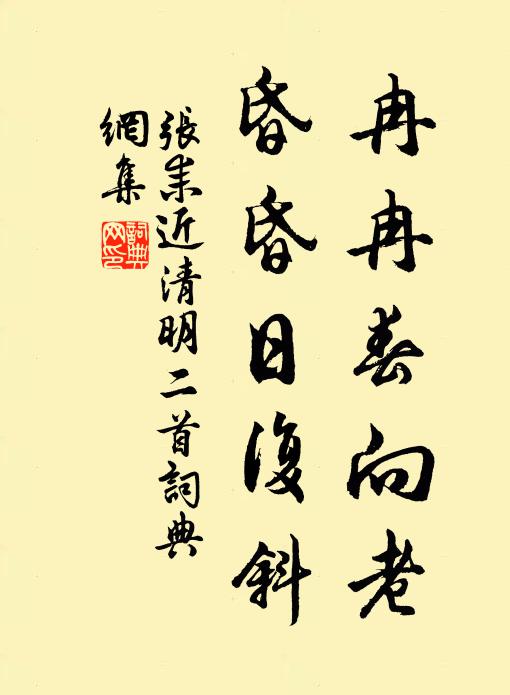 冉冉春向老
昏昏日復斜
張耒近清明二首詞典
網集
詞典
网印